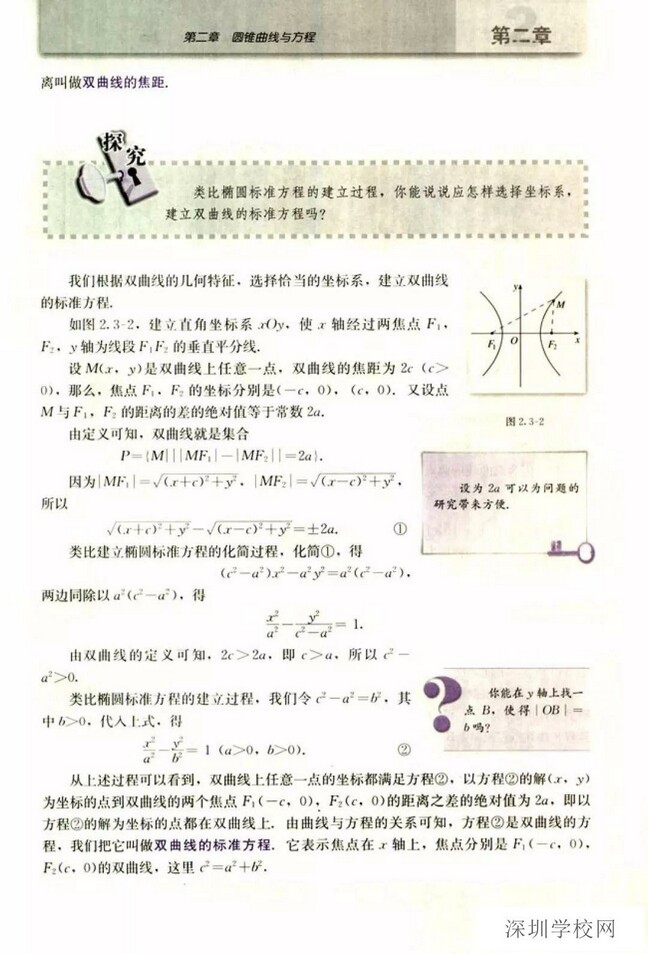 第二章 圆锥曲线与方程
第二章
离叫做双曲线的焦距.
探究
类比椭圆标准方程的建立过程，你能说说应怎样选择坐标系，
建立双曲线的标准方程吗？
我们根据双曲线的几何特征，选择恰当的坐标系，建立双曲线
的标准方程.
如图 2.3-2，建立直角坐标系 xOy，使 x 轴经过两焦点 F₁，
F₂，y 轴为线段 F₁F₂ 的垂直平分线.
设 M(x，y)是双曲线上任意一点，双曲线的焦距为 2c（c>
0)，那么，焦点 F₁，F₂ 的坐标分别是(-c，0)，(c，0). 又设点
M 与 F₁，F₂ 的距离的差的绝对值等于常数 2a.
由定义可知，双曲线就是集合
P={M| ||MF₁|-|MF₂||=2a}.
因为|MF₁|=√((x+c)²+y²)，|MF₂|=√((x-c)²+y²)，
所以
√((x+c)²+y²)-√((x-c)²+y²)=±2a. ①
类比建立椭圆标准方程的化简过程，化简①，得
(c²-a²)x²-a²y²=a²(c²-a²)，
两边同除以 a²(c²-a²)，得
x²/a²-y²/(c²-a²)=1.
由双曲线的定义可知，2c>2a，即 c>a，所以 c²-
a²>0.
类比椭圆标准方程的建立过程，我们令 c²-a²=b²，其
中 b>0，代入上式，得
x²/a²-y²/b²=1 (a>0，b>0). ②
y
M
F₁ O F₂ x
图 2.3-2
设为 2a 可以为问题的
研究带来方便.
?
你能在 y 轴上找一
点 B，使得 |OB|=
b 吗？
从上述过程可以看到，双曲线上任意一点的坐标都满足方程②，以方程②的解(x，y)
为坐标的点到双曲线的两个焦点 F₁(-c，0)，F₂(c，0)的距离之差的绝对值为 2a，即以
方程②的解为坐标的点都在双曲线上. 由曲线与方程的关系可知，方程②是双曲线的方
程，我们把它叫做双曲线的标准方程. 它表示焦点在 x 轴上，焦点分别是 F₁(-c，0)，
F₂(c，0)的双曲线，这里 c²=a²+b².
深圳学校网